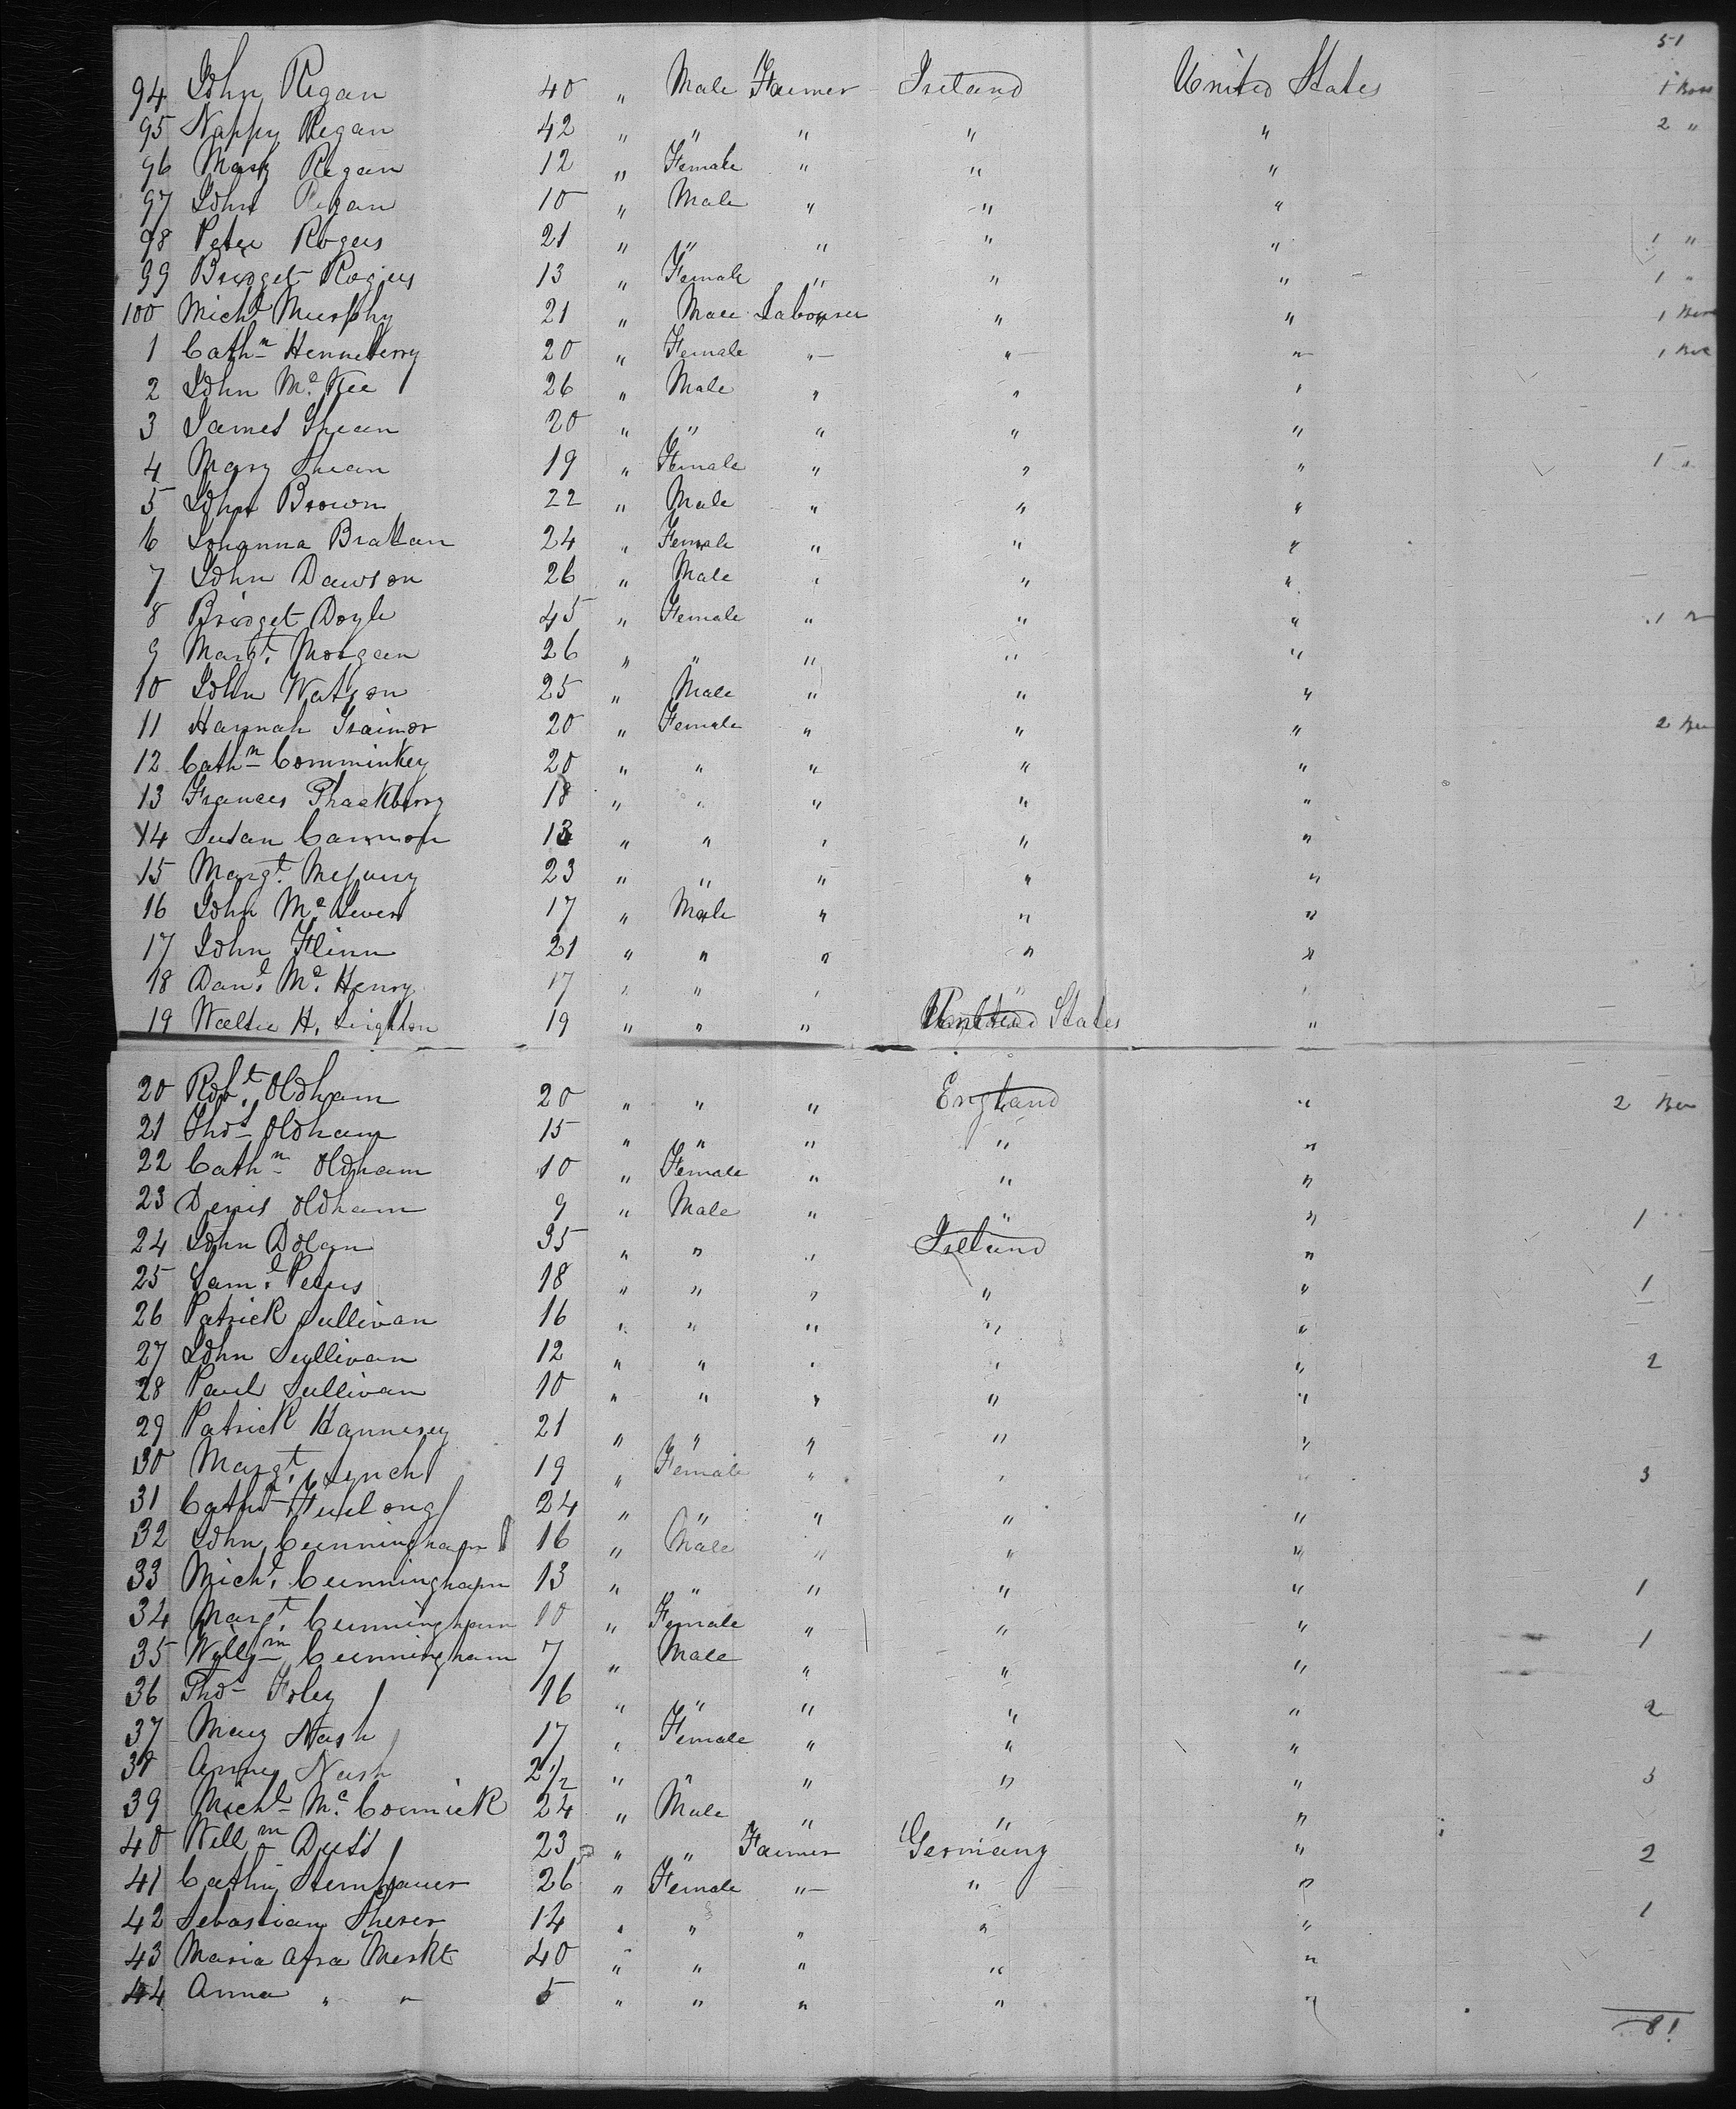 51
94 John Regan 40 " Male Farmer Ireland United States 1 Box
95 Nappy Regan 42 " " " " " 2 "
96 Mary Regan 12 " Female " " "
97 John Regan 10 " Male " " "
98 Peter Rogers 21 " " " " " 1 "
99 Bridget Rogers 13 " Female " " " 1 "
100 Michl Murphy 21 " Male Labourer " " 1 Box
1 Cathn Henneberry 20 " Female " " " 1 Box
2 John Mc Kee 26 " Male " " "
3 James Shean 20 " " " " "
4 Mary Shean 19 " Female " " " 1 "
5 John Brown 22 " Male " " "
6 Johanna Brattan 24 " Female " " "
7 John Dawson 26 " Male " " "
8 Bridget Doyle 45 " Female " " " 1
9 Margt. Morgan 26 " " " " "
10 John Watson 25 " Male " " "
11 Hannah Trainor 20 " Female " " " 2
12 Cathn Comminkey 20 " " " " "
13 Frances Thackberry 18 " " " " "
14 Susan Cannon 13 " " " " "
15 Margt. 23 " " " " "
16 John Mc 17 " Male " " "
17 John Flinn 21 " " " " "
18 Danl. Mc Henry 17 " " " " "
19 Walter H. Leighton 19 " " " United States "
20 Robt. Oldham 20 " " " England " 2
21 Thos Oldham 15 " " " " "
22 Cathn Oldham 10 " Female " " "
23 Denis Oldham 9 " Male " " " 1
24 John Dolan 35 " " " Ireland "
25 Saml. Peters 18 " " " " " 1
26 Patrick Sullivan 16 " " " " "
27 John Sullivan 12 " " " " " 2
28 Paul Sullivan 10 " " " " "
29 Patrick Hannesey 21 " " " " "
30 Margt. Lynch 19 " Female " " " 3
31 Cathn Furlong 24 " " " " "
32 John Cunningham 16 " Male " " "
33 Michl. Cunningham 13 " " " " " 1
34 Margt. Cunningham 10 " Female " " "
35 Willm Cunningham 7 " Male " " " 1
36 Thos Foley 16 " " " " " 2
37 Mary Nash 17 " Female " " "
38 Anne Nash 2 1/2 " " " " " 3
39 Michl Mc Cormick 24 " Male " " "
40 Willm 23 " " Farmer Germany " 2
41 Cathn 26 " Female " " "
42 Sebastian Sherer 14 " " " " " 1
43 Maria Afra Merkt 40 " " " " "
44 Anna " " 5 " " " " "
81